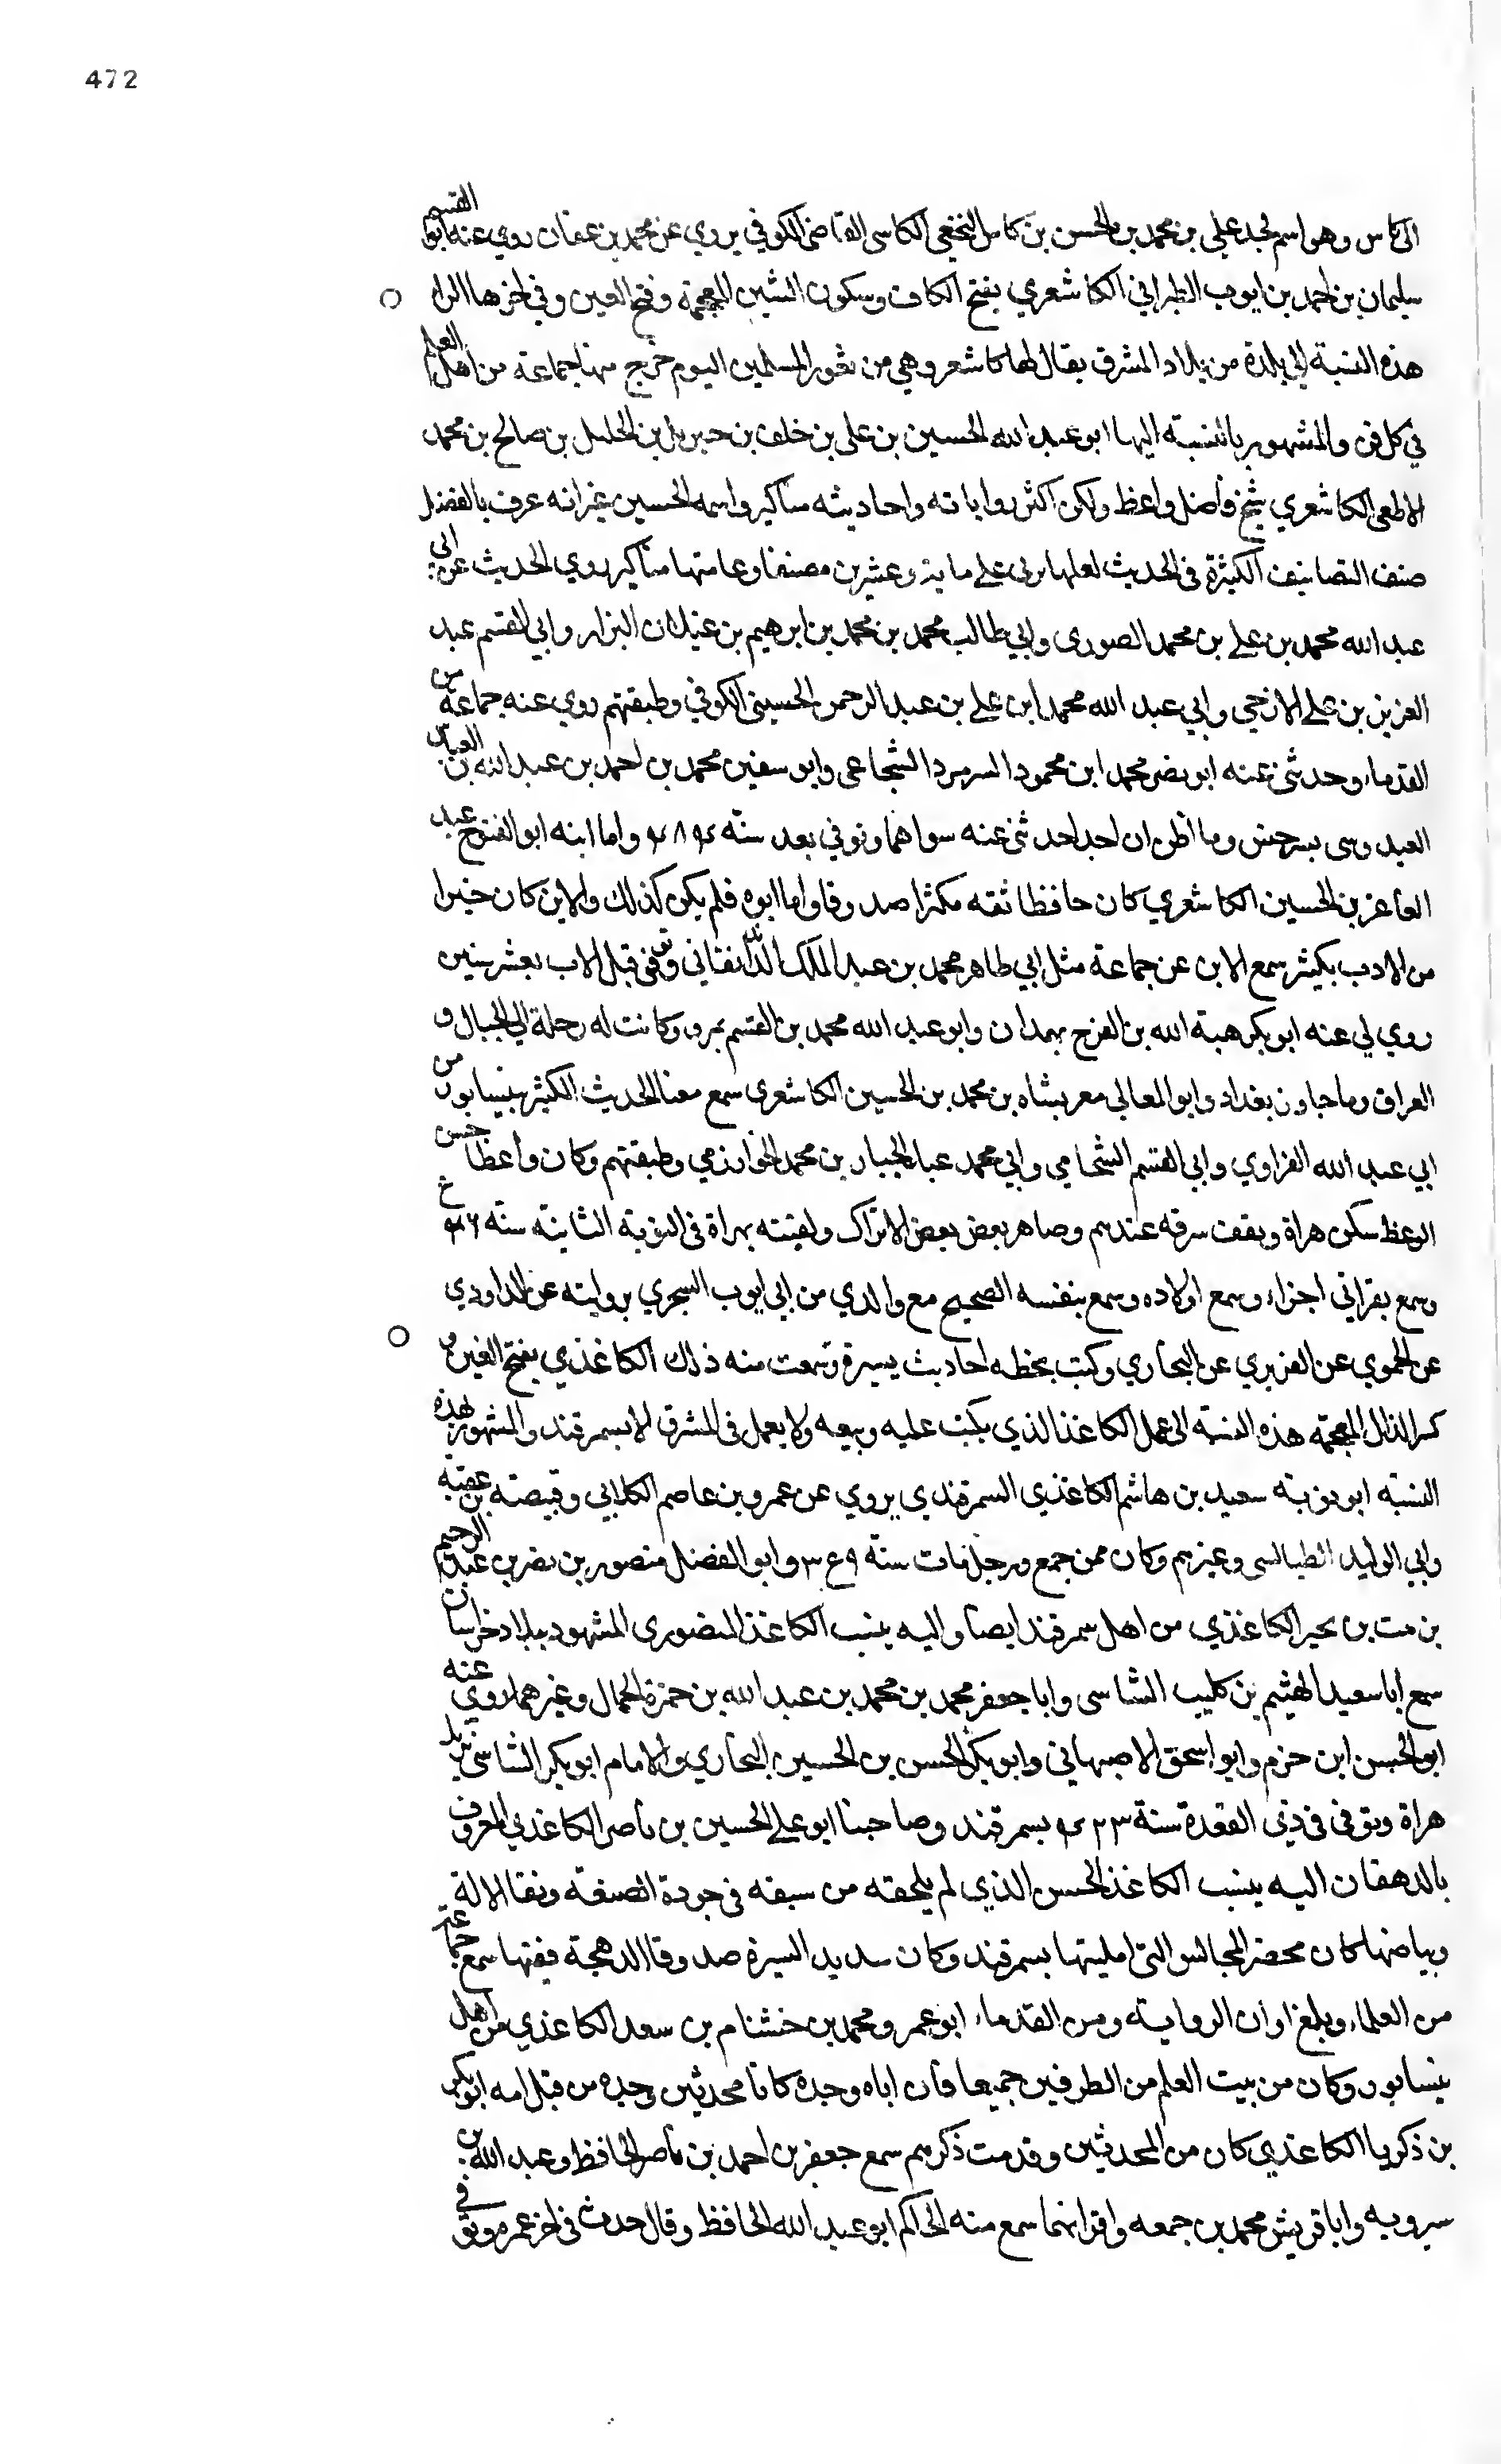 472
الى كاس وهو اسم لجد علي بن محمد بن الحسن بن كاس النخعي الكاسى القاضى الكوفي يروي عن محمد بن عفان روي عنه ابو القسم
سليمان بن احمد بن ايوب الطبراني الكاشغري بفتح الكاف وسكون الشين المعجمة وفتح الغين وفي اخرها الراء
هذه النسبة الي بلدة من بلاد المشرق يقال لها كاشغر وهي من ثغور المسلمين اليوم خرج منها جماعة من اهل العلم
في كل فن والمشهور بالنسبة اليها ابو عبد الله الحسين بن على بن خلف بن جبريل بن الخليل بن صالح بن محمد
الالمعي الكاشغري شيخ فاضل واعظ ولكن اكثر رواياته واحاديثه مناكير واسمه الحسين غير انه عرف بالفضل
صنف التصانيف الكثيرة في الحديث لعلها تربى على ماية وعشرين مصنفا وعامتها مناكير روي الحديث عن ابي
عبد الله محمد بن علي بن محمد الصورى وابي طالب محمد بن محمد بن ابرهيم بن غيلان البزار وابي القسم عبد
العزيز بن علي الازجي وابي عبد الله محمد ابن علي بن عبد الرحمن الحسيني الكوفي وطبقتهم روي عنه جماعة من
القدماء وحدثني عنه ابو نصر محمد ابن محمود السرمرد الشجاعى وابو سفين محمد بن احمد بن عبد الله بن
العبدوسى بسرخس وما اظن ان احدا حدثني عنه سواهما وتوفي بعد سنة ٤٨٤ واما ابنه ابو الفتوح عبد
الغافر بن الحسين الكاشغري كان حافظا ثقه مكثرا صدوقا واما ابوه فلم يكن كذلك والابن كان خيرا
من الاب بكثير سمع الابن عن جماعة مثل ابي طاهر محمد بن عبد الملك الدندانقاني وتوفى قبل الاب بعشر سنين
روي لي عنه ابو بكر هبة الله بن الفرج بهمدان وابو عبد الله محمد بن القسم بمرو وكانت له رحلة الي الجبال و
العراق وما جاوز بغداد وابو المعالي معربشاه بن محمد بن الحسين الكاشغرى سمع معنا الحديث الكثير بنيسابور من
ابي عبد الله الفراوي وابي القسم الشحامي وابي محمد عبد الجبار بن محمد الخوارزمي وطبقتهم وكان واعظا حسن
الوعظ سكن هراة ونفقت سوقه عندهم وصاهر بعض بعض الاتراك ولقيته بهراة في النوبة الثانية سنة
وسمع بقراتي اجزاء وسمع اولاده وسمع بنفسه الصحيح مع والدي من ابي ايوب السجزي بروايته عن الداودي
عن الحموي عن الفربري عن البخاري وكتب بخطه احاديث يسيرة وسمعت منه ذلك الكاغذي بفتح الغين و
كسر الذال المعجمة هذه النسبة الى عمل الكاغذ الذي يكتب عليه وبيعه ولا يعمل في المشرق الا بسمرقند والمشهور بهذه
النسبة ابو توبة سعيد بن هاشم الكاغذي السمرقندي يروي عن عمرو بن عاصم الكلابي وقبيصة بن عقبة
وابي الوليد الطيالسى وغيرهم وكان ممن جمع ورحل مات سنة وابو الفضل منصور بن نصر بن عبد الرحيم
بن مت بن بحير الكاغذي من اهل سمرقند ايضا واليه ينسب الكاغذ المنصورى المشهور ببلاد خراسان
سمع ابا سعيد الهيثم بن كليب الشاسى وابا جعفر محمد بن محمد بن عبد الله بن حمزة الجمال وغيرهما روي عنه
ابو الحسن ابن حزم وابو اسحق الاصبهاني وابو بكر الحسن بن الحسين البخاري والامام ابو بكر الشاسي نزيل
هراة وتوفى فى ذي القعدة سنة ٤٢٣ بسمرقند وصاحبنا ابو علي الحسين بن ناصر الكاغذي المعروف
بالدهقان اليه ينسب الكاغذ الحسن الذي لم يلحقه من سبقه في جودة الصنعة ونقا الالة
وبياضها كان محضر المجالس التي امليتها بسمرقند وكان سديد السيرة صدوقا اللهجة فقيها سمع جماعة
من العلماء وبلغ اوان الرواية ومن القدماء ابو عمرو محمد بن خشنام بن سعد الكاغذي من اهل
نيسابور وكان من بيت العلم من الطرفين جميعا فان اباه وجده كانا محدثين وجده من قبل امه ابو بكر
بن زكريا الكاغذي كان من المحدثين وقدمت ذكرهم سمع جعفر بن احمد بن ناصر الحافظ وعبد الله بن
سيرويه وابا قريش محمد بن جمعه واقرانهما سمع منه الحاكم ابو عبد الله الحافظ وقال حدث في اخر عمره وتوفي